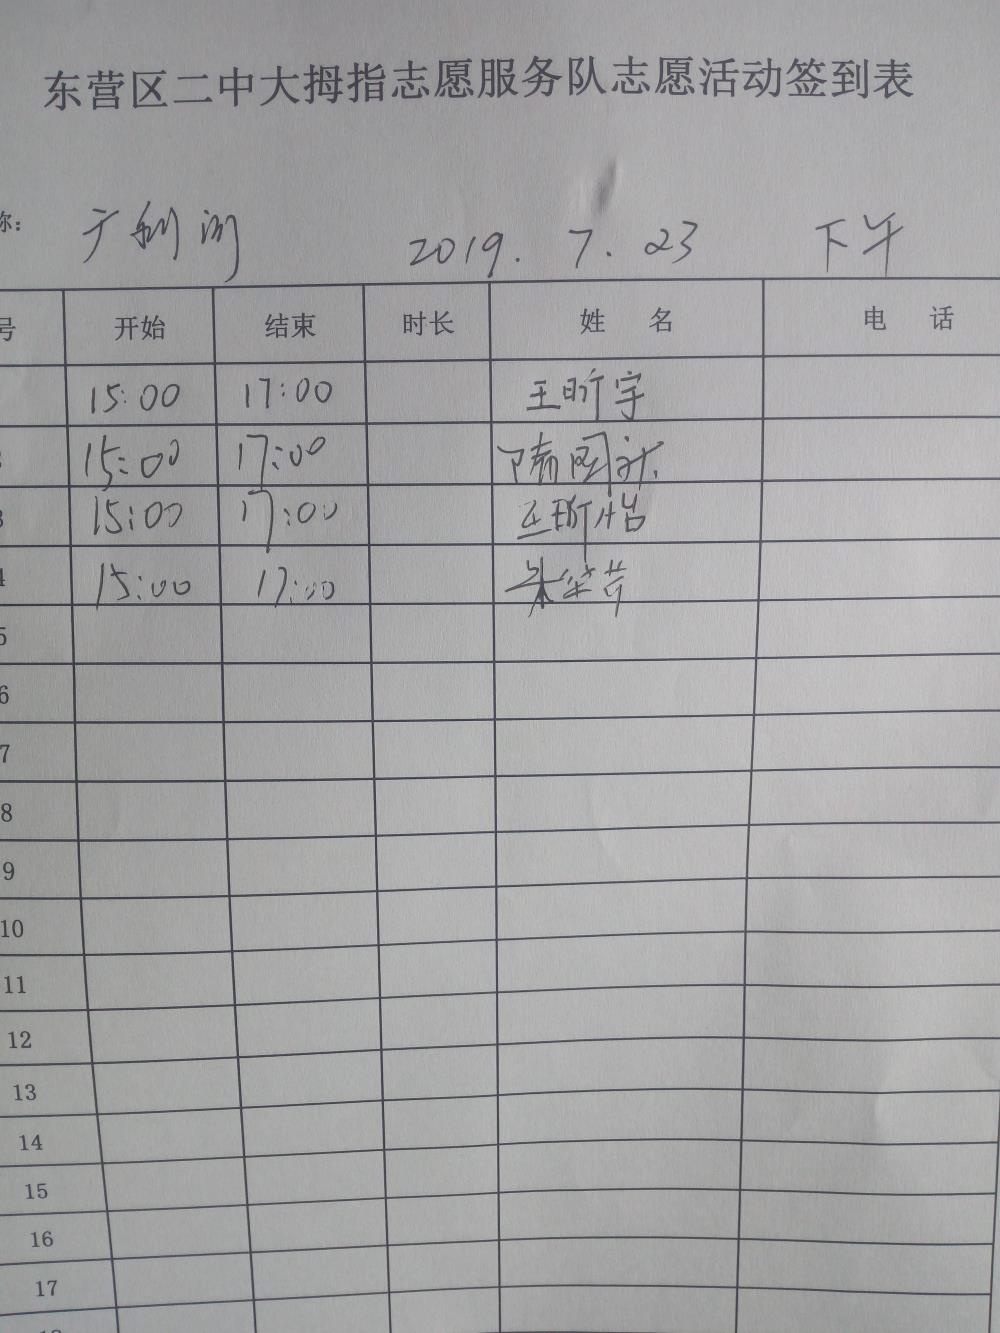 东营区二中大拇指志愿服务队志愿活动签到表
称： 2019.7.23 下午
号 开始 结束 时长 姓 名 电 话
15:00 17:00 王昕宇
15:00 17:00
3 15:00 17:00 王昕怡
4 15:00 17:00 朱
5
6
7
8
9
10
11
12
13
14
15
16
17